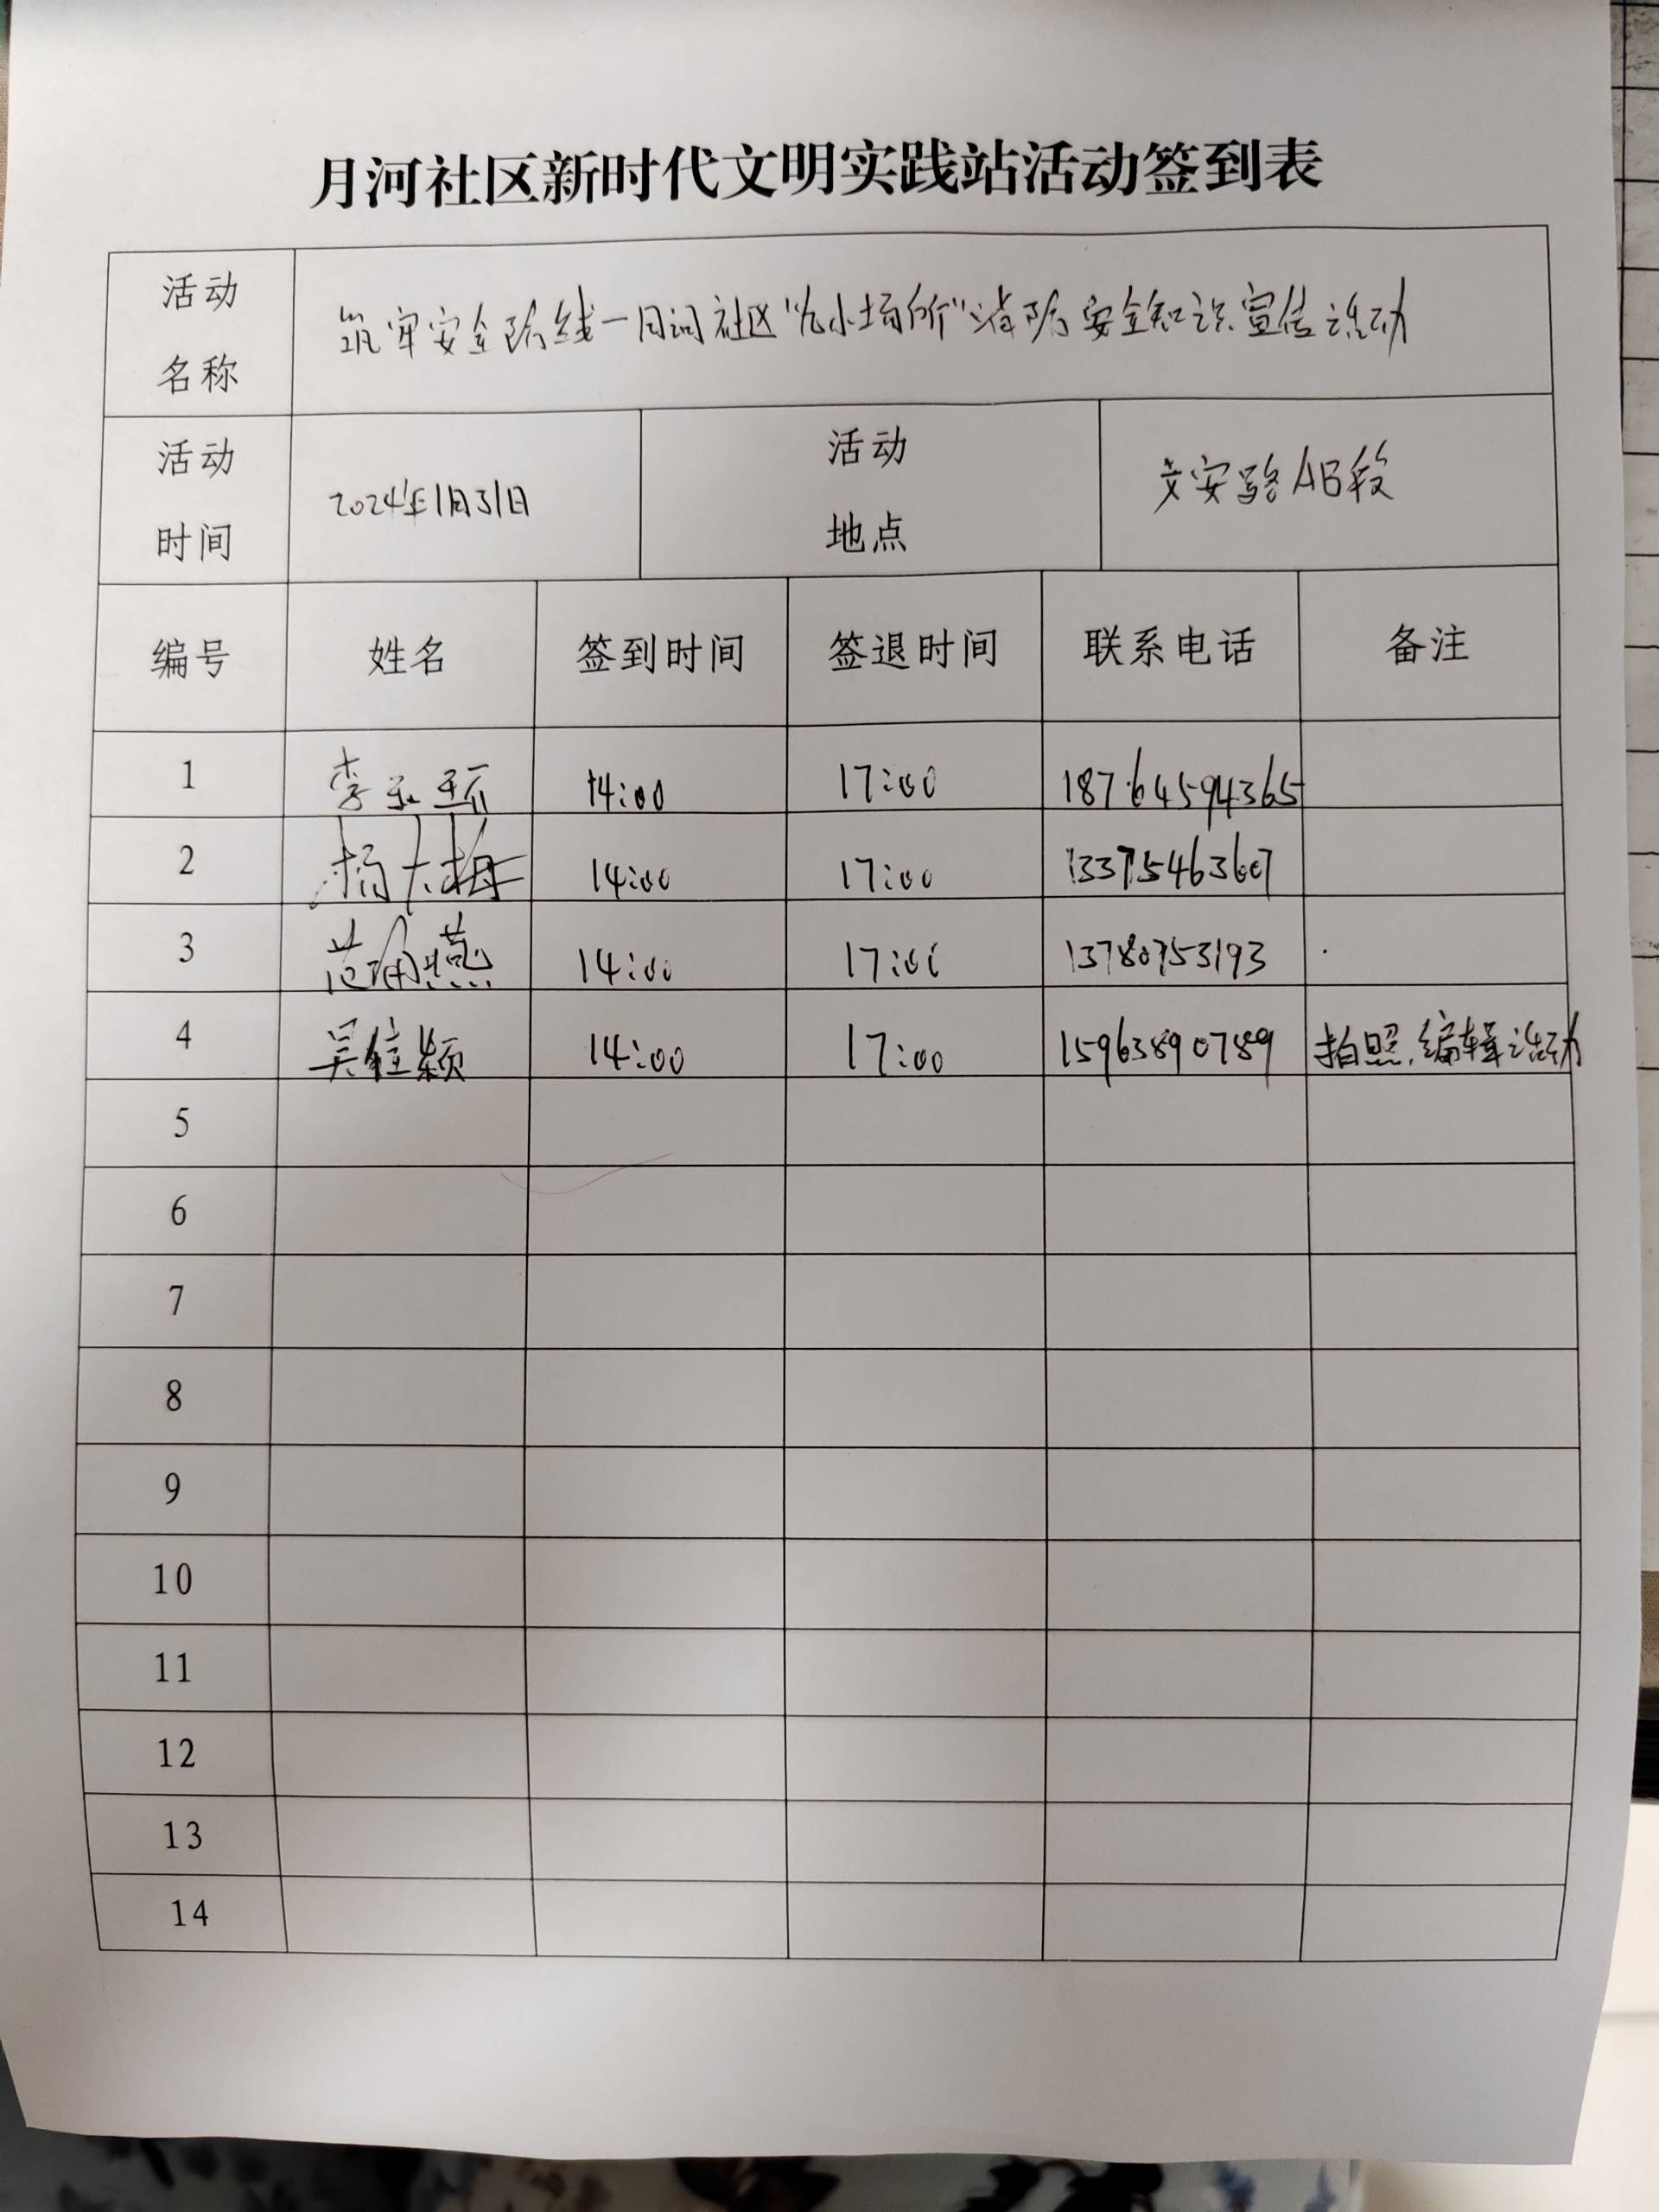 月河社区新时代文明实践站活动签到表
活动名称 筑牢安全防线—月河社区“九小场所”消防安全知识宣传活动
活动时间 2024年1月31日 活动地点 文安路AB段
编号 姓名 签到时间 签退时间 联系电话 备注
1 李 14:00 17:00 18764594365
2 杨大梅 14:00 17:00 13375463607
3 范 燕 14:00 17:00 13780753193
4 吴 颖 14:00 17:00 15963890789 拍照、编辑活动
5
6
7
8
9
10
11
12
13
14